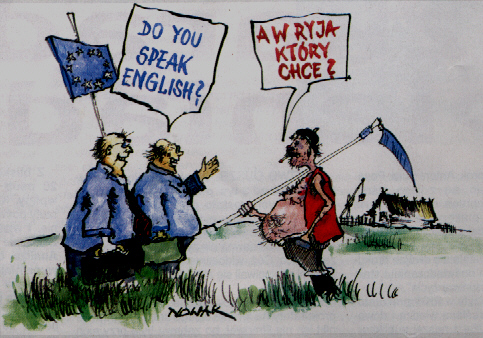 DO YOU
SPEAK
ENGLISH?
A W RYJA
KTÓRY
CHCE?
NOWAK